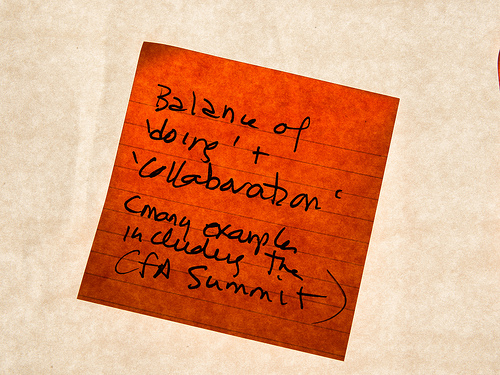 Balance of
'doing' +
'collaboration'
(many examples
including the
CfA Summit)